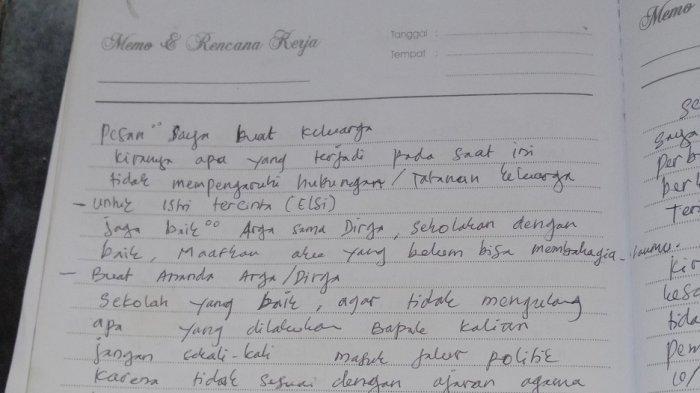 Memo & Rencana Kerja
Tanggal :
Tempat :
Pesan°° Saya buat keluarga
Kiranya apa yang terjadi pada saat ini
tidak mempengaruhi hubungan / Tatanan keluarga
- untuk Istri tercinta (Elsi)
jaga baik°° Arga sama Dirga, sekolahan dengan
baik, Maafkan aku yang belum bisa membahagia-kanmu.
- Buat Ananda Arga/Dirga
Sekolah yang baik, agar tidak mengulang
apa yang dilakukan Bapak kalian
jangan sekali-kali masuk jalur politik
Karena tidak sesuai dengan ajaran agama
Memo
saya